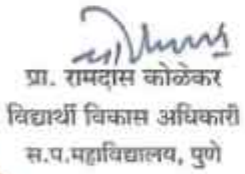 प्रा. रामदास कोळेकर
विद्यार्थी विकास अधिकारी
स.प.महाविद्यालय, पुणे